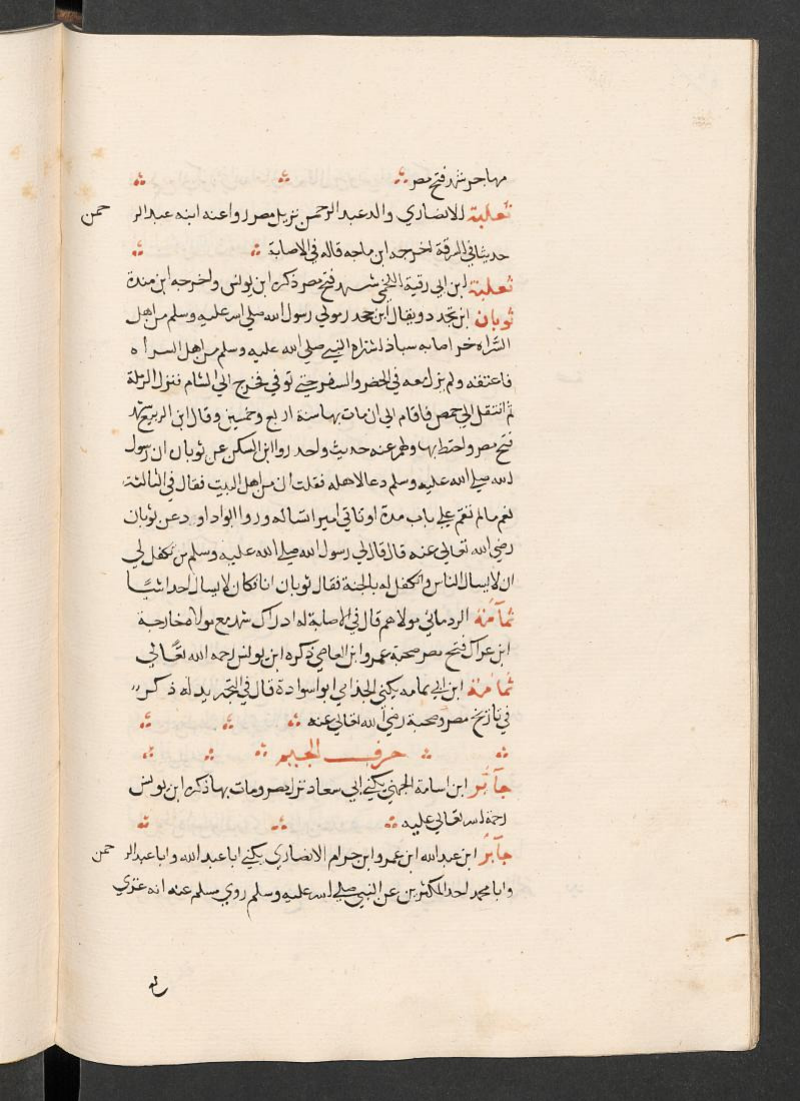 مهاجر شهد فتح مصر
ثعلبة الانصاري والد عبد الرحمن نزيل مصر روا عنه ابنه عبد الرحمن
حديثا في السرقة اخرجه ابن ماجه قاله في الاصابة
ثعلبة ابن ابي رقية اللخمي شهد فتح مصر ذكره ابن يونس واخرجه ابن مندة
ثوبان ابن بجدد ويقال ابن جحدر مولي رسول الله صلي الله عليه وسلم من اهل
السراه اصابه سبا فاشتراه النبي صلي الله عليه وسلم من اهل السراه
فاعتقه ولم يزل معه في الحضر والسفر حتي توفي فخرج الي الشام فنزل الرملة
ثم انتقل الي حمص فاقام الي ان مات بها سنة اربع وخمسين وقال ابن الربيع شهد
فتح مصر واختط بها ولهم عنه حديث واحد روا ابن السكن عن ثوبان ان رسول
الله صلي الله عليه وسلم دعا لاهله فقلت ان من اهل البيت فقال في الثالثة
نعم مالم تقم علي باب سدة او تاتي اميرا تساله وروا ابو داود عن ثوبان
رضي الله تعالي عنه قال قال لي رسول الله صلي الله عليه وسلم من تكفل لي
ان لا يسال الناس واتكفل له بالجنة فقال ثوبان انا فكان لا يسال احدا شيًا
ثمامة الردماني مولاهم قال في الاصابة له ادراك شهد مع مولاه خارجة
ابن عراك فتح مصر صحبة عمرو ابن العاص ذكره ابن يونس رحمه الله تعالي
ثمامة ابن ابي ثمامه يكني الجذامي ابو اسوادة قال في التجريد له ذكر
في تاريخ مصر وصحبة رضي الله تعالي عنه
حرف الجيم
جابر ابن اسامة الجهني يكني ابي سعاد نزل مصر ومات بها ذكره ابن يونس
رحمة الله تعالي عليه
جابر ابن عبد الله ابن عمرو ابن حرام الانصاري يكني ابا عبد الله وابا عبد الرحمن
وابا محمد احد المكثرين عن النبي صلي الله عليه وسلم روي مسلم عنه انه غزي